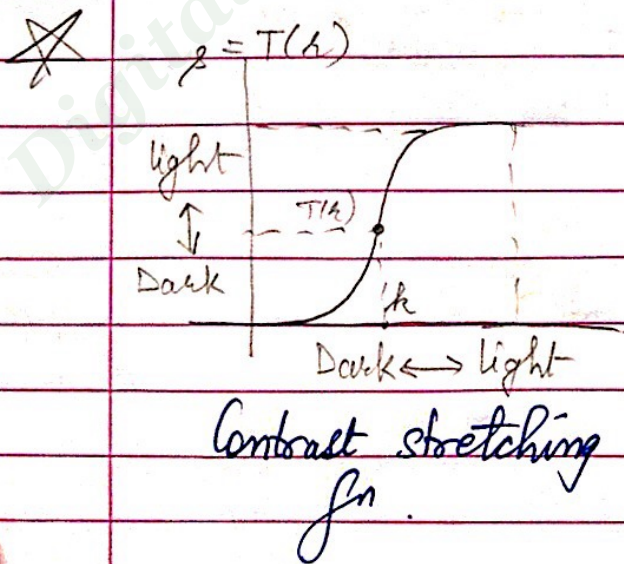 Digita
s = T(r)
light
T(r)
Dark
k
Dark ↔ light
Contrast stretching
fn.